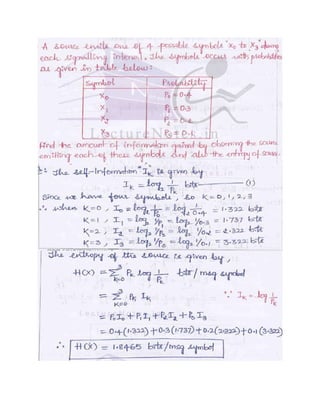 A source emits one of 4 possible symbols "X0 to X3" during
each signalling interval. The symbols occur with probabilities
as given in table below:
Symbol Probability
X0 P0 = 0.4
X1 P1 = 0.3
X2 P2 = 0.2
X3 P3 = 0.1
LectureNotes.in
Find the amount of information gained by observing the source
emitting each of these symbols and also the entropy of source.
S: The self-Information "IK" is given by
IK = log2 1/PK bits — (1)
Since we have four symbols, so K = 0, 1, 2, 3
∴ when K=0, I0 = log2 1/P0 = log2 1/0.4 = 1.322 bits
K=1, I1 = log2 1/P1 = log2 1/0.3 = 1.737 bits
K=2, I2 = log2 1/P2 = log2 1/0.2 = 2.322 bits
K=3, I3 = log2 1/P3 = log2 1/0.1 = 3.322 bits
The entropy of this source is given by,
H(X) = 3∑K=0 PK log 1/PK bits/msg symbol
= 3∑K=0 PK IK ∵ IK = log 1/PK
= P0I0 + P1I1 + P2I2 + P3I3
= 0.4(1.322) + 0.3(1.737) + 0.2(2.322) + 0.1(3.322)
∴ H(X) = 1.8465 bits/msg symbol